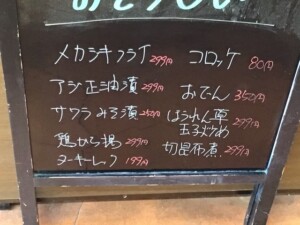 メカジキフライ 299円
アジ正油漬 299円
サワラみそ漬 250円
鶏から揚 299円
199円
コロッケ 80円
おでん 350円
ほうれん草
玉子炒め 299円
切昆布煮 299円